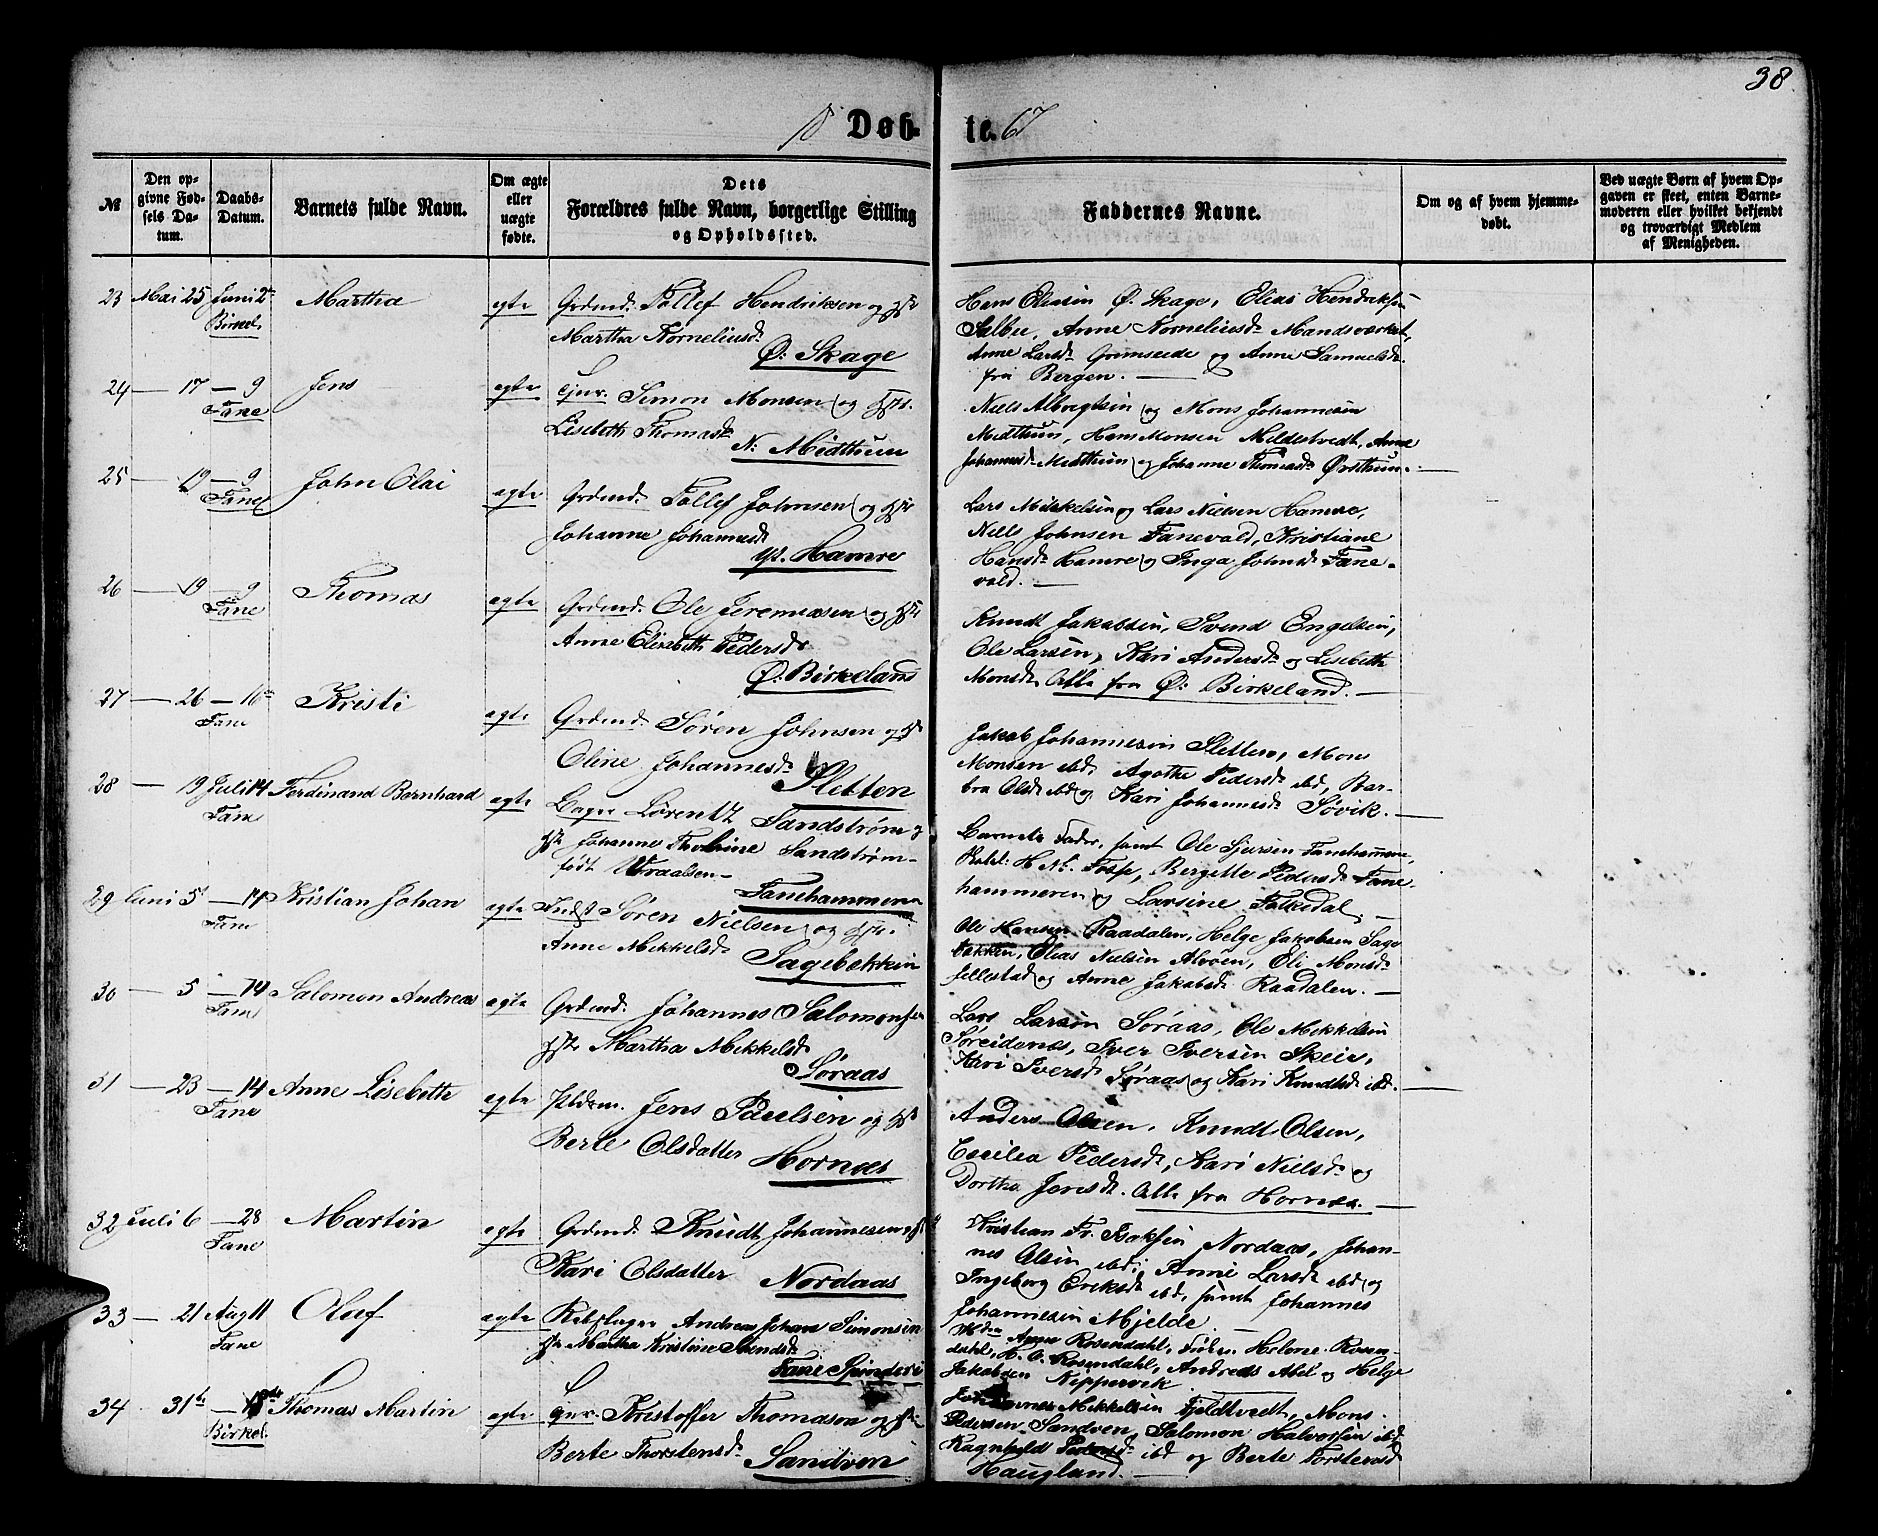 38.
18 Døb- te. 67
№
Den op-
givne Fød-
sels Da-
tum.
Daabs-
Datum.
Barnets fulde Navn.
Om ægte
eller
uægte
fødte.
Dets
Forældres fulde Navn, borgerlige Stilling
og Opholdssted.
Faddernes Navne.
Om og af hvem hjemme-
døbt.
Ved uægte Børn af hvem Op-
gaven er skeet, enten Barne-
moderen eller hvilket bekjendt
og troværdigt Medlem
af Menigheden.
23 Mai 25 Juni 2 Martha egte Grdmd. Tollef Hendriksen og
Birkel. Martha Korneliusd.
Ø. Skage
Hans Eliasen Ø. Skage, Elias Hendriksen
Sælbu, Anne Korneliusd. Mandsværket,
Anne Larsd. Grimseide og Anne Samuelsd.
fra Bergen. —
24 — 17 — 9 Jens egte Ejnr. Simon Monsen og
Fane Lisebeth Thomasd.
N. Midthun
Niels Albregtsen og Mons Johannesen
Midthun, Hans Monsen Mildestvedt, Anne
Johannesd. Midthun og Johanne Thomasd. Øvsthun. —
25 — 19 — 9 John Olai egte Grdmd. Tollef Johnsen og
Fane Johanne Johannesd.
Yt. Hamre
Lars Mikkelsen og Lars Nielsen Hamre,
Niels Johnsen Fanevold, Kristiane
Hansd. Hamre og Inga Johnsd. Fane-
vold. —
26 — 19 — 9 Thomas egte Grdmd. Ole Jeremiasen og
Fane Anne Elisebeth Pedersd.
Ø. Birkeland
Knudt Jakobsen, Svend Engelsen,
Ole Larsen, Kari Andersd. og Lisebeth
Monsd. Alle fra Ø. Birkeland. —
27 — 26 — 16 Kristi egte Grdmd. Søren Johnsen og
Fane Oline Johannesd.
Sletten
Jakob Johannesen Sletten, Mons
Monsen ibd, Agathe Pedersd. ibd, Bar-
bra Olsd. ibd og Kari Johannesd. Søvik. —
28 — 19 Juli 14 Ferdinand Bernhard egte Bager Lorentz Sandstrøm og
Fane Johanne Thobine Sandstrøm
født Wraalsen
Fanehammeren
Barnets Fader, samt Ole Sjursen Fanehammeren,
H. Nt. Fosse, Bergitte Pedersd. Fane-
hammeren og Larsine Falkedal. —
29 Juni 5 — 14 Kristian Johan egte Indst Søren Nielsen og
Fane Anne Mikkelsd.
Sagebækken
Ole Hansen Raadalen, Helge Jakobsen Sage-
bækken, Elias Nielsen Alvøen, Eli Monsd.
Fellestad og Anne Jakobsd. Raadalen. —
30 — 5 — 14 Salomon Andreas egte Grdmd. Johannes Salomonsen
Fane Martha Mikkelsd.
Søraas
Lars Larsen Søraas, Ole Mikkelsen
Søreidenæs, Iver Iversen Skeie,
Kari Iversd. Søraas og Kari Knudtsd. ibd. —
31 — 23 — 14 Anne Lisebeth egte Jens Paulsen og
Fane Berte Olsdatter Hornæs
Anders Olsen, Knudt Olsen,
Cecilia Pedersd, Kari Nielsd. og
Dorthe Jensd. Alle fra Hornæs. —
32 Juli 6 — 28 Martin egte Grdmd. Knudt Johannesen
Fane Kari Olsdatter Nordaas
Kristian Fr. Isaksen Nordaas, Johan-
nes Olsen ibd; Anne Larsd. ibd og
Ingeborg Eriksd. ibd, samt Johannes
Johannesen Mjelde. —
33 — 21 Aug 11 Olaf egte Rebslager Andreas Johan Simonsen
Fane Martha Kristine
Fane Spinderi
Anne Rosendahl, Helene Rosen-
dahl, H. O. Rosendahl, Andreas Abel og Helge
Jakobsen Kippervik
34 31 — 18 Thomas Martin egte Gnr. Kristoffer Thomasen og
Birkel. Berte Thorstensd.
Sandven
Johannes Mikkelsen Fjeldtvedt, Mons
Pedersen Sandven, Salomon Halvorsen ibd
Ragnhild Pedersd. ibd og Berte Torstensd
Haugland. —